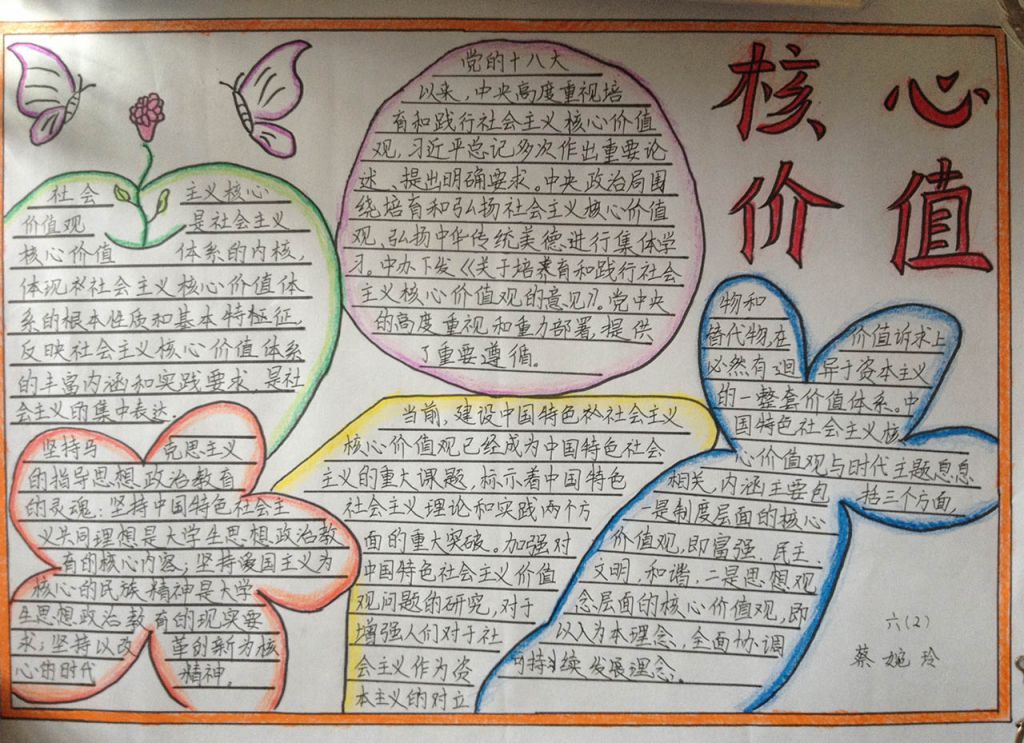 核心
价值
党的十八大
以来,中央高度重视培
育和践行社会主义核心价值
观,习近平总记多次作出重要论
述、提出明确要求。中央政治局围
绕培育和弘扬社会主义核心价值
观、弘扬中华传统美德进行集体学
习。中办下发《关于培养育和践行社会
主义核心价值观的意见》。党中央
的高度重视和重力部署,提供
了重要遵循。
社会 主义核心
价值观 是社会主义
核心价值 体系的内核,
体现社会主义核心价值体
系的根本性质和基本特征,
反映社会主义核心价值体系
的丰富内涵和实践要求 是社
会主义的集中表达.
坚持马 克思主义
的指导思想,政治教育
的灵魂;坚持中国特色社会主
义共同理想是大学生思想政治教
育的核心内容;坚持爱国主义为
核心的民族精神是大学
生思想政治教育的现实要
求;坚持以改 革创新为核
心的时代 精神。
当前,建设中国特色社会主义
核心价值观已经成为中国特色社会
主义的重大课题,标示着中国特色
社会主义理论和实践两个方
面的重大突破。加强对
中国特色社会主义价值
观问题的研究,对于
增强人们对于社
会主义作为资
本主义的对立
物和
替代物,在 价值诉求上
必然有迥 异于资本主义
的一整套价值体系。中
国特色社会主义核
心价值观与时代主题息息
相关,内涵主要包 括三个方面,
一是制度层面的核心
价值观,即富强、民主、
文明,和谐,二是思想观
念层面的核心价值观,即
以人为本理念,全面协调
可持续发展理念。
六(2)
蔡婉玲